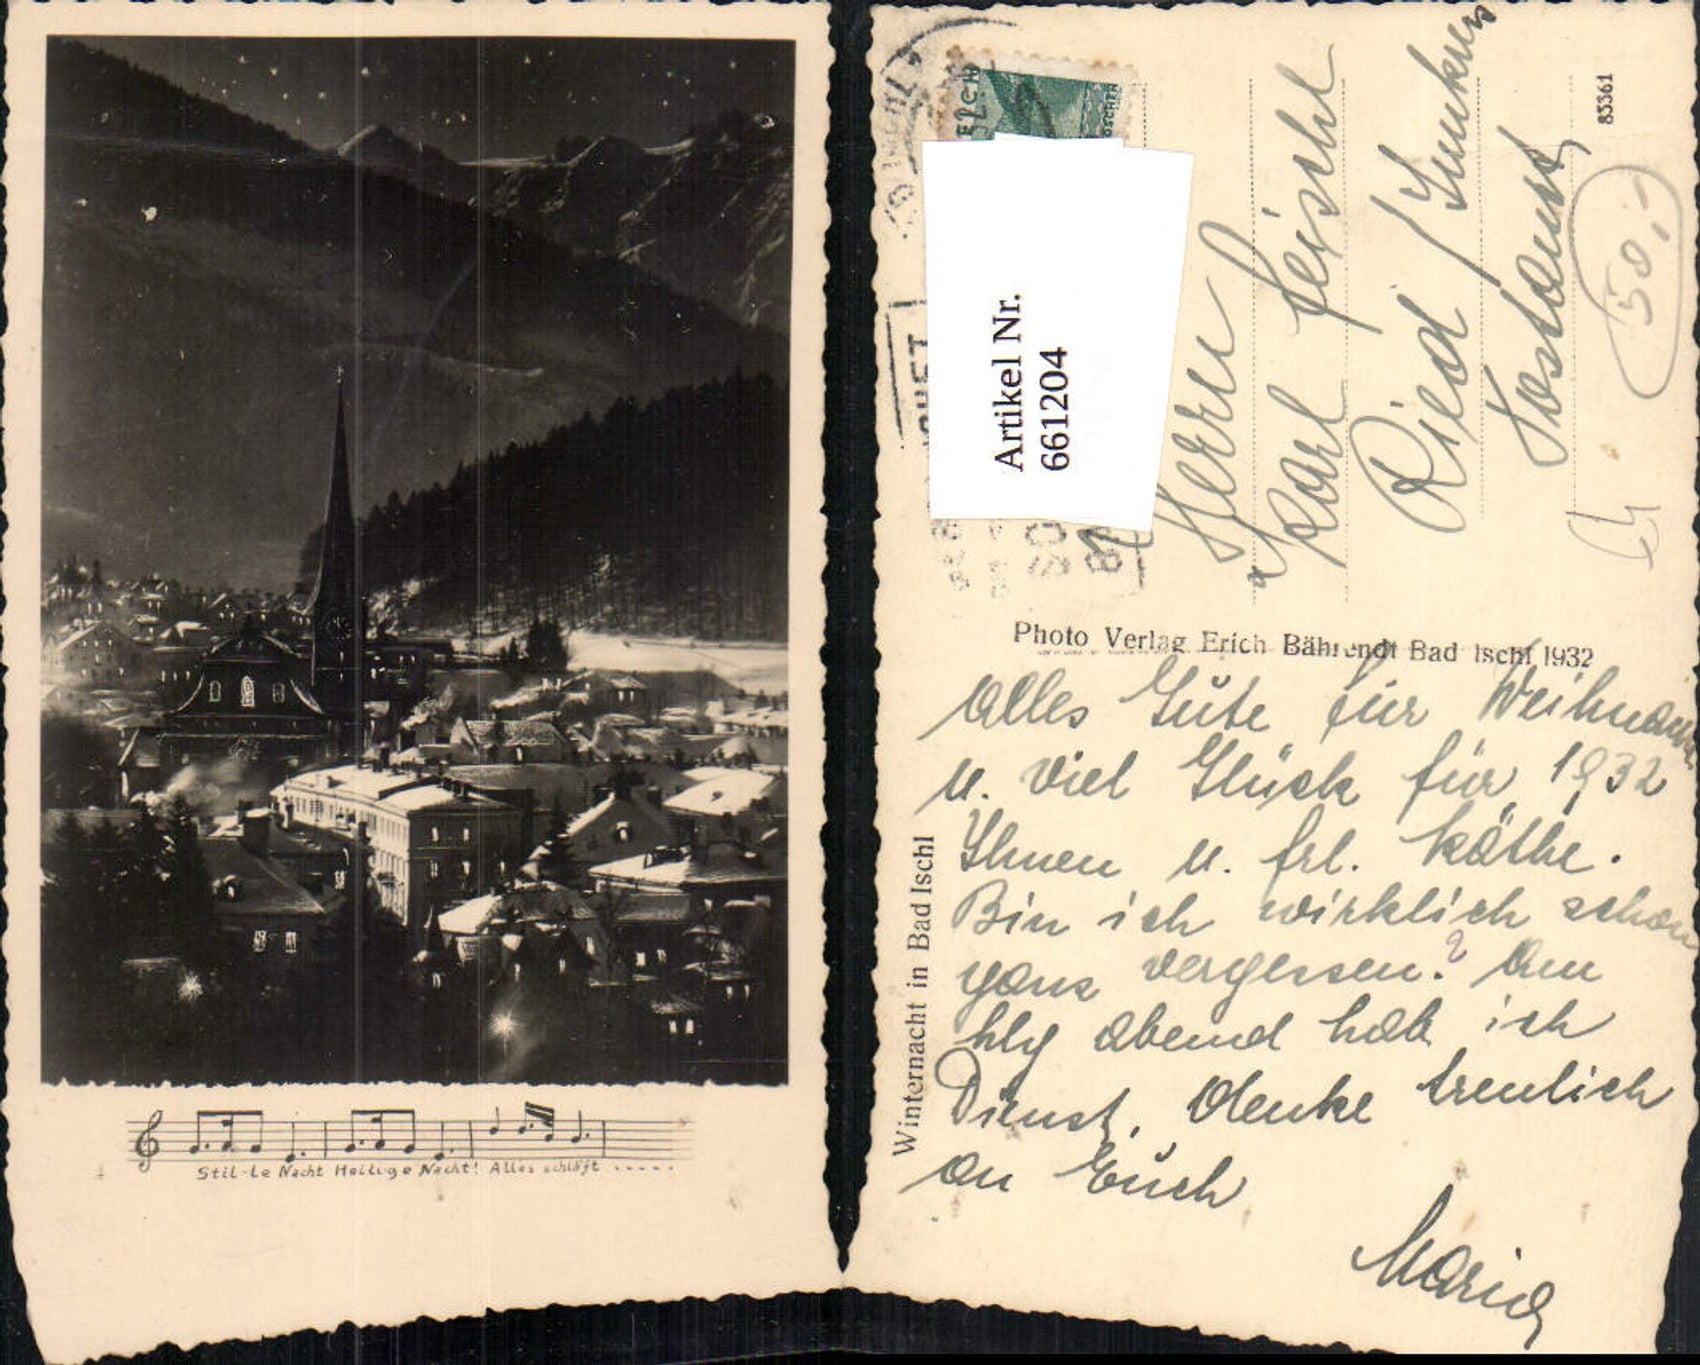 Stil-le Nacht Heilige Nacht! Alles schläft .....
Artikel Nr.
661204
Herrn
Karl
Ried / Innkreis
Postamt
83361
50,-
Photo Verlag Erich Bährendt Bad Ischl 1932
Winternacht in Bad Ischl
Alles Gute für
u. viel Glück für 1932
Ihnen u. frl. Käthe.
Bin ich wirklich schon
ganz vergessen? Am
hlg abend hab ich
Dienst, denke treulich
an Euch
Maria